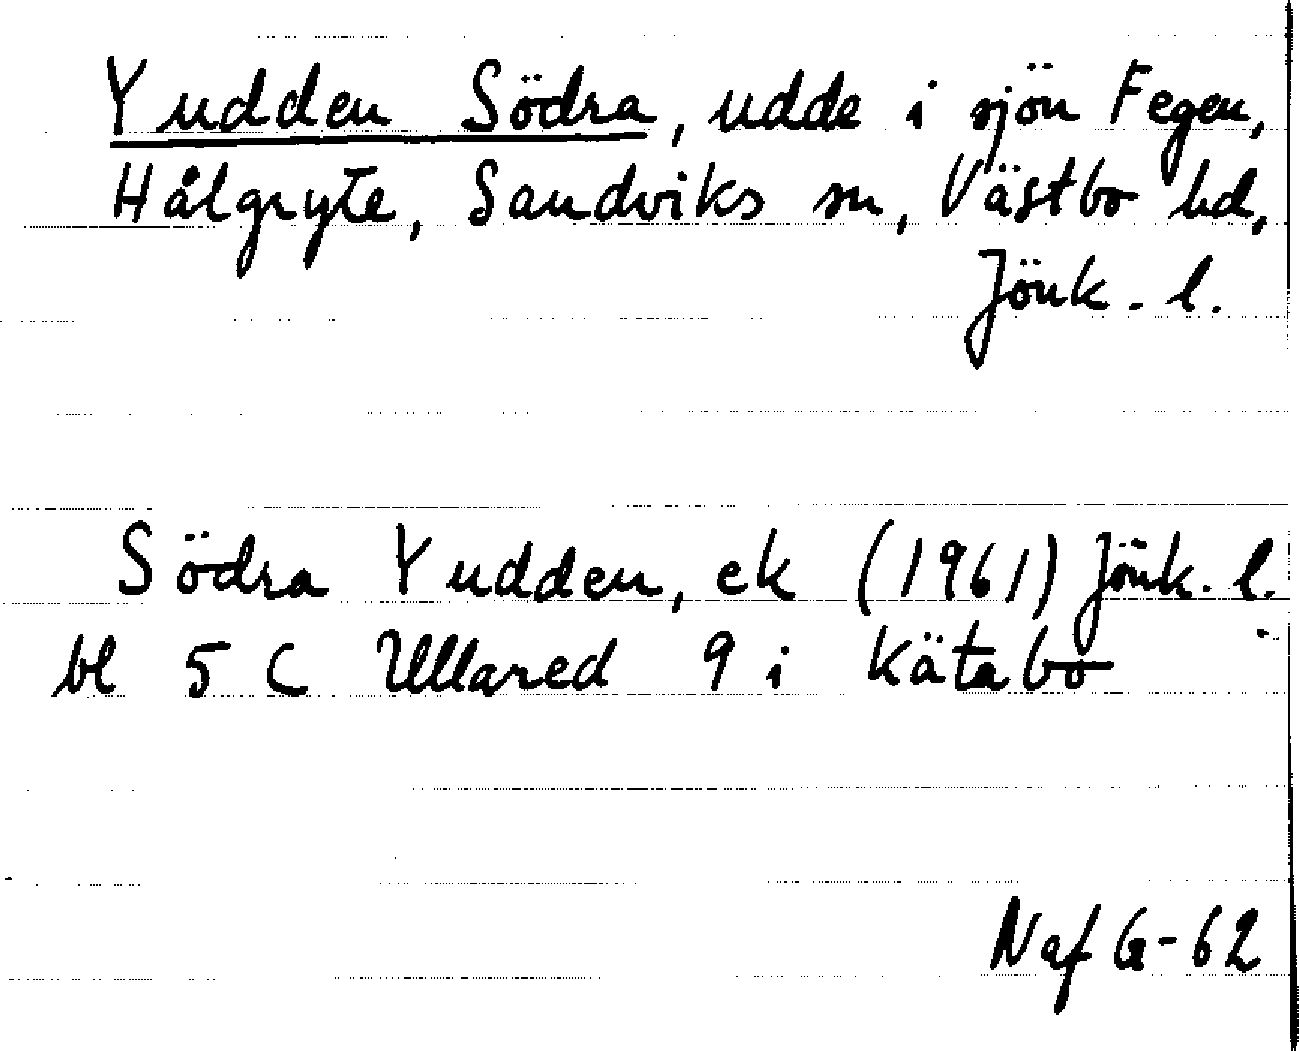 Yudden Södra, udde i sjön Fegen,
Hålgryte, Sandviks sn, Västbo hd,
Jönk. l.
Södra Yudden, ek (1961) Jönk. l.
bl 5 C Ullared 9 i Kätabo
Naf G-62